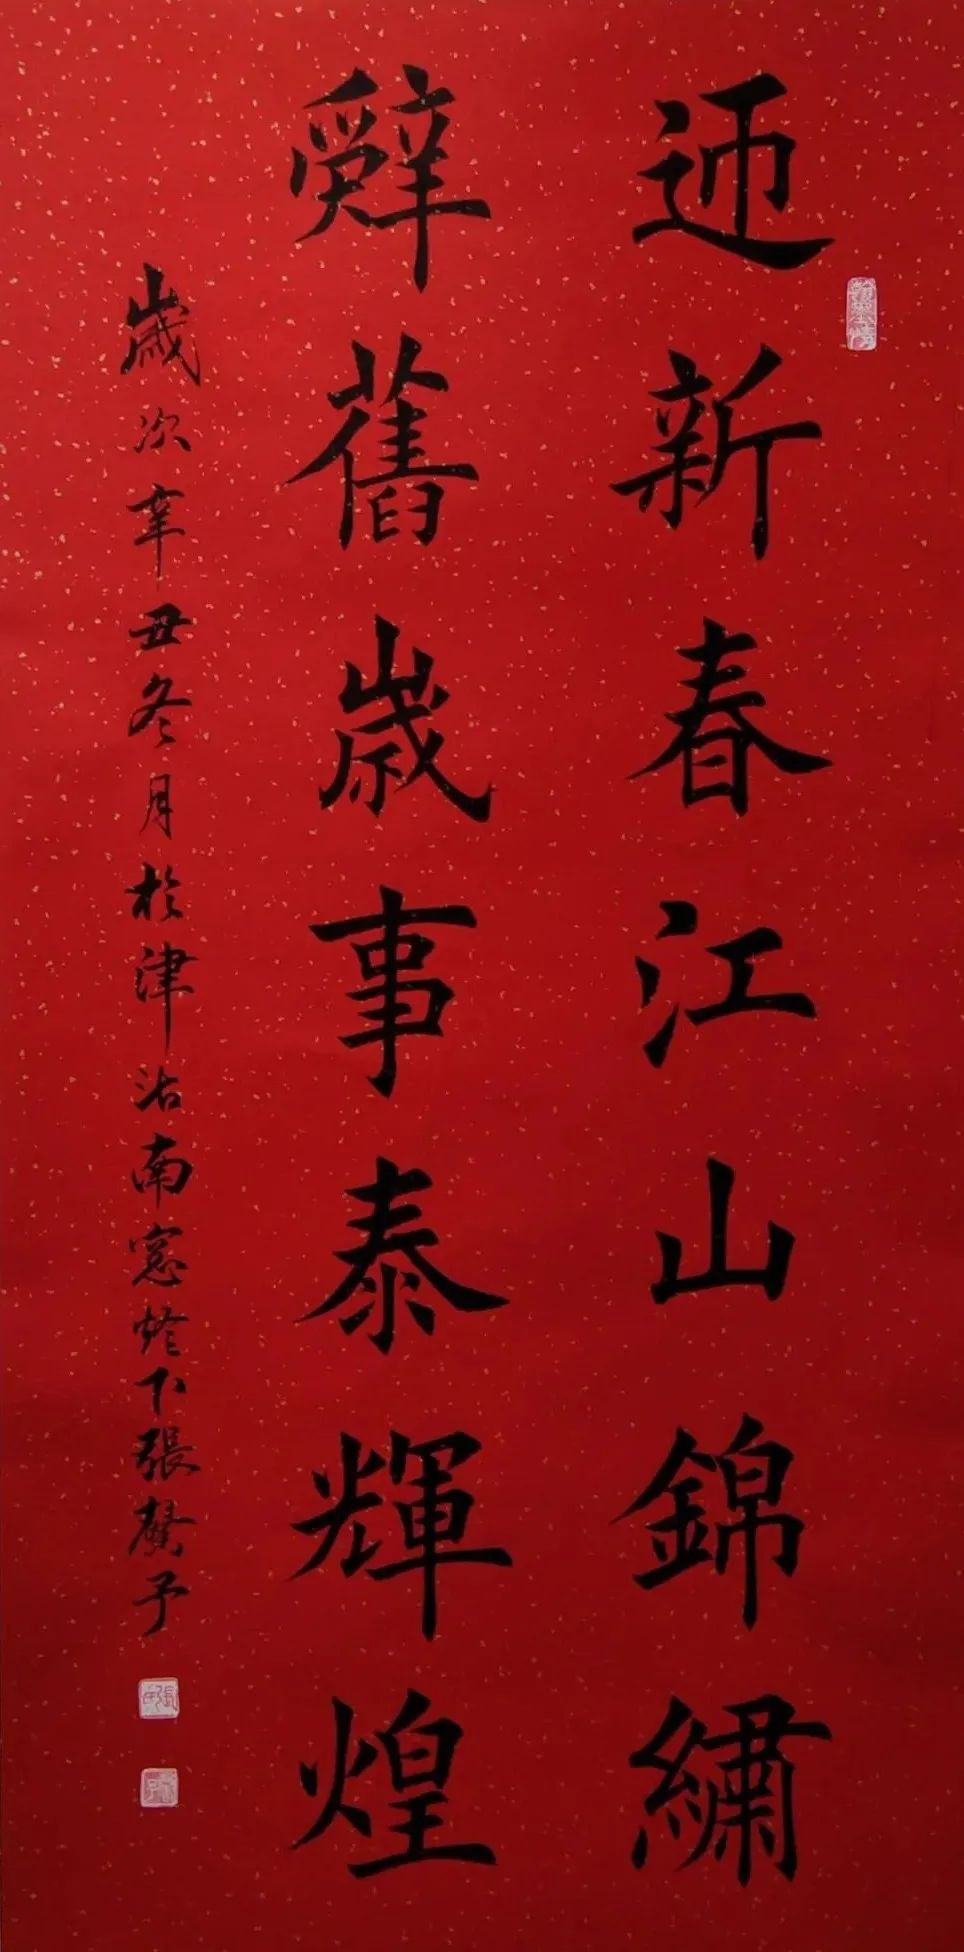 迎新春江山錦繡
辭舊歲事泰輝煌
歲次辛丑冬月於津沽南窓燈下張馨予